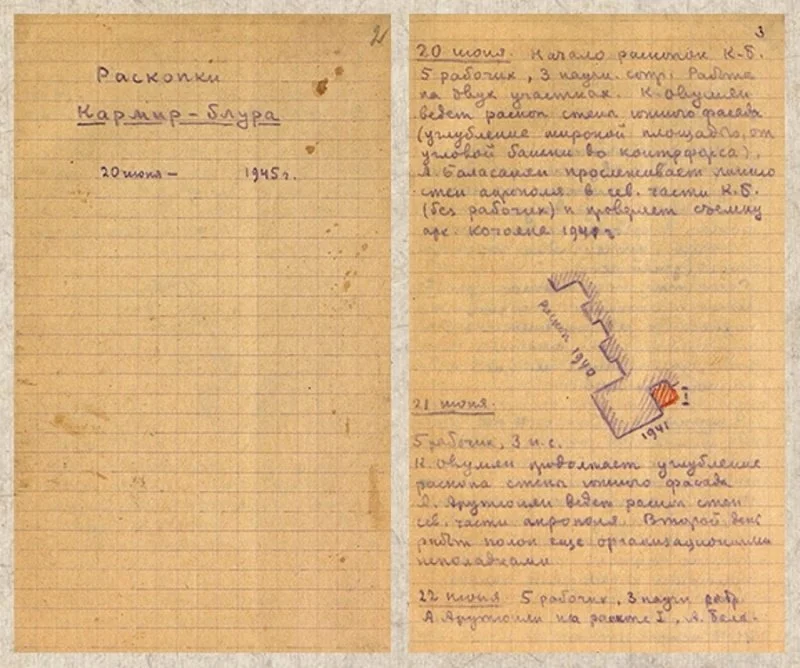 2
Раскопки
Кармир-блура
20 июня – 1945 г.
3
20 июня. Начало раскопок К-Б.
5 рабочих, 3 научн. сотр. Работа
на двух участках. К. Овумян
ведет раскоп стены южного фасада
(углубление широкой площадью, от
угловой башни до контрфорса).
А. Баласанян прослеживает линию
стен акрополя в сев. части К.Б.
(без рабочих) и проверяет съемку
арх. Кочояна 1940 г.
раскоп 1940
I
1941
21 июня.
5 рабочих, 3 н.с.
К. Овумян продолжает углубление
раскопа стены южного фасада
Арутюнян ведет раскоп стен
сев. части акрополя. Второй день
работ полон еще организационными
неполадками.
22 июня 5 рабочих, 3 научн
А. Арутюнян на раскопе I, А. Бала-